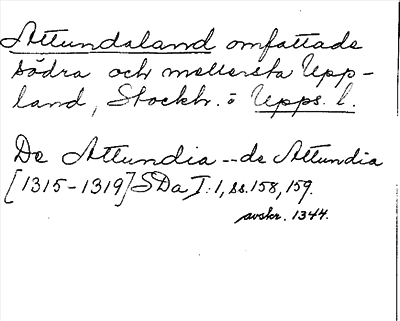 Attundaland omfattade
södra och mellersta Upp-
land, Stockh. o Upps. l.
De Attundia -- de Attundia
[1315-1319] SDa I:1, ss. 158, 159.
avskr. 1344.